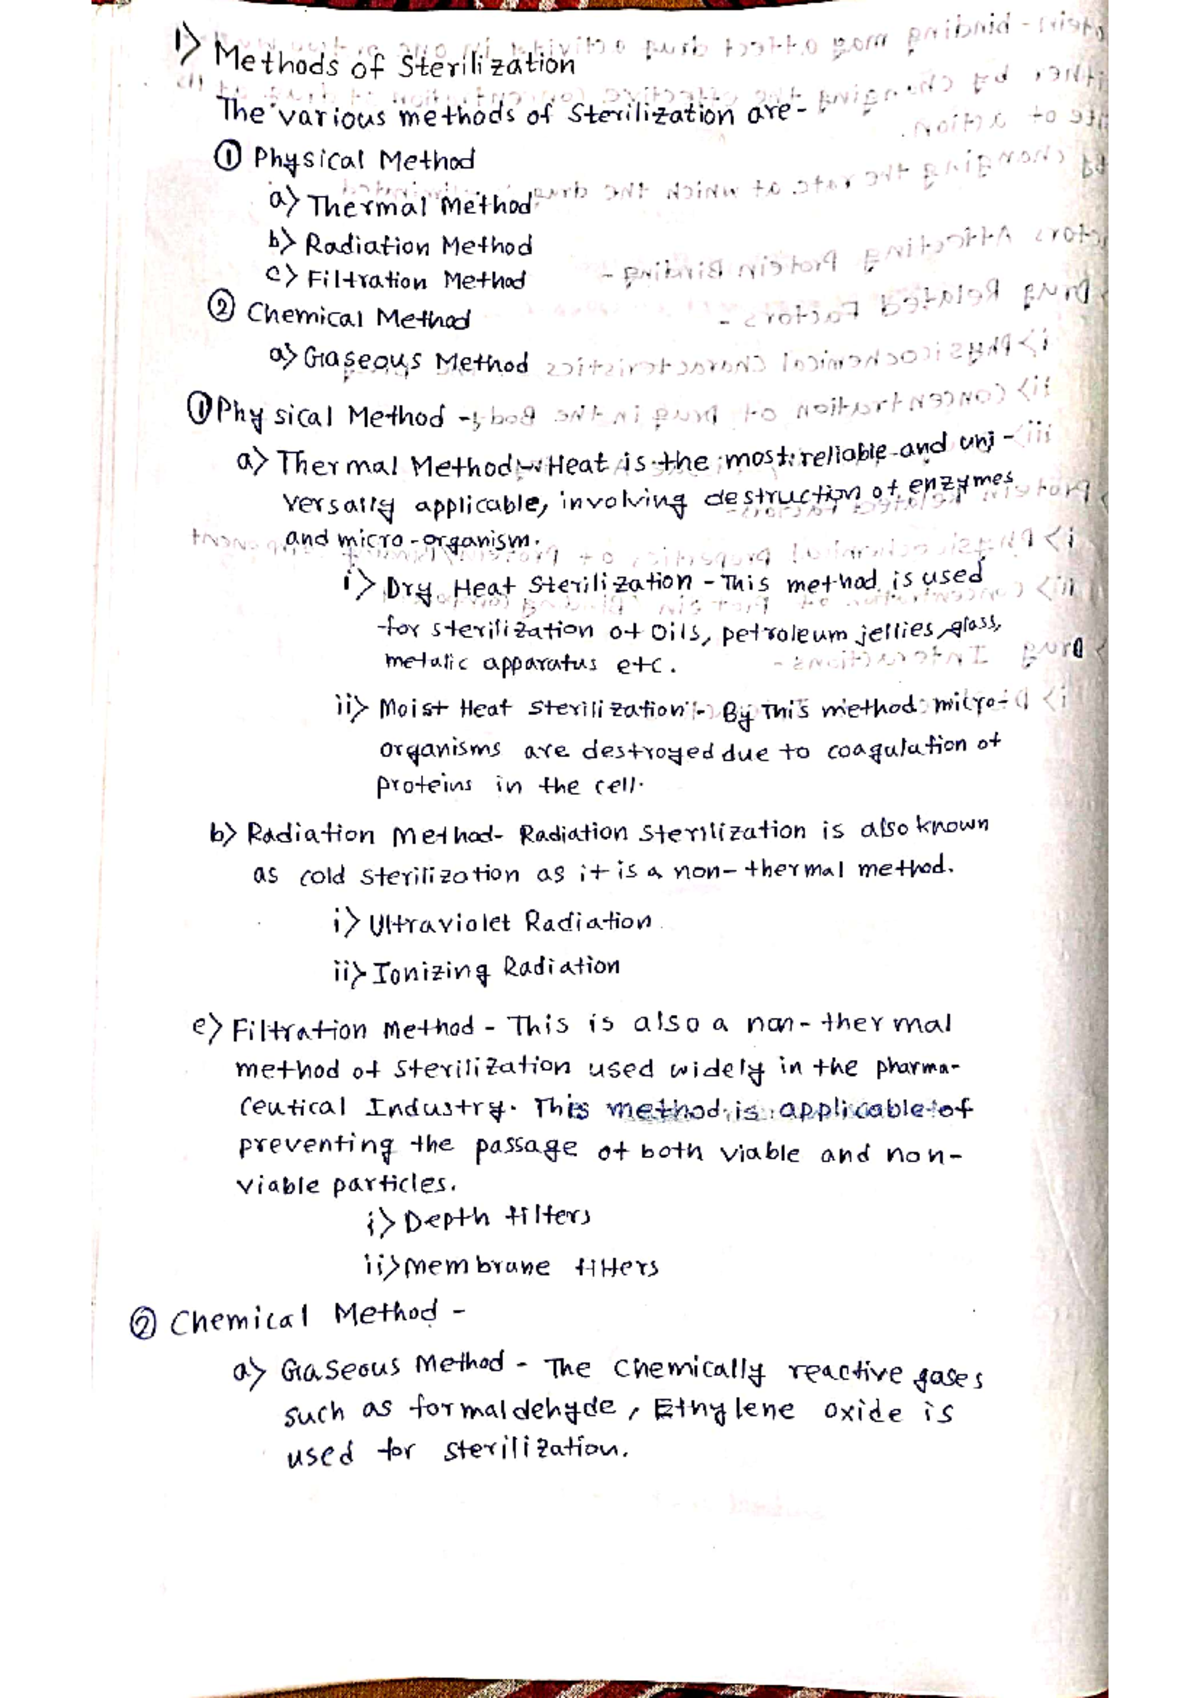 1> Methods of Sterilization
The various methods of Sterilization are -
① Physical Method
a> Thermal Method
b> Radiation Method
c> Filtration Method
② Chemical Method
a> Gaseous Method
① Physical Method -
a> Thermal Method:- Heat is the most reliable and uni-
versally applicable, involving destruction of enzymes
and micro-organism.
i> Dry Heat Sterilization - This method is used
for sterilization of Oils, petroleum jellies, glass,
metalic apparatus etc.
ii> Moist Heat Sterilization:- By This method micro-
organisms are destroyed due to coagulation of
proteins in the cell.
b> Radiation Method- Radiation Sterilization is also known
as cold sterilization as it is a non-thermal method.
i> Ultraviolet Radiation
ii> Ionizing Radiation
c> Filtration Method - This is also a non-thermal
method of Sterilization used widely in the pharma-
ceutical Industry. This method is applicable of
preventing the passage of both viable and non-
viable particles.
i> Depth filters
ii> Membrane filters
② Chemical Method -
a> Gaseous Method - The Chemically reactive gases
such as formaldehyde, Ethylene oxide is
used for sterilization.